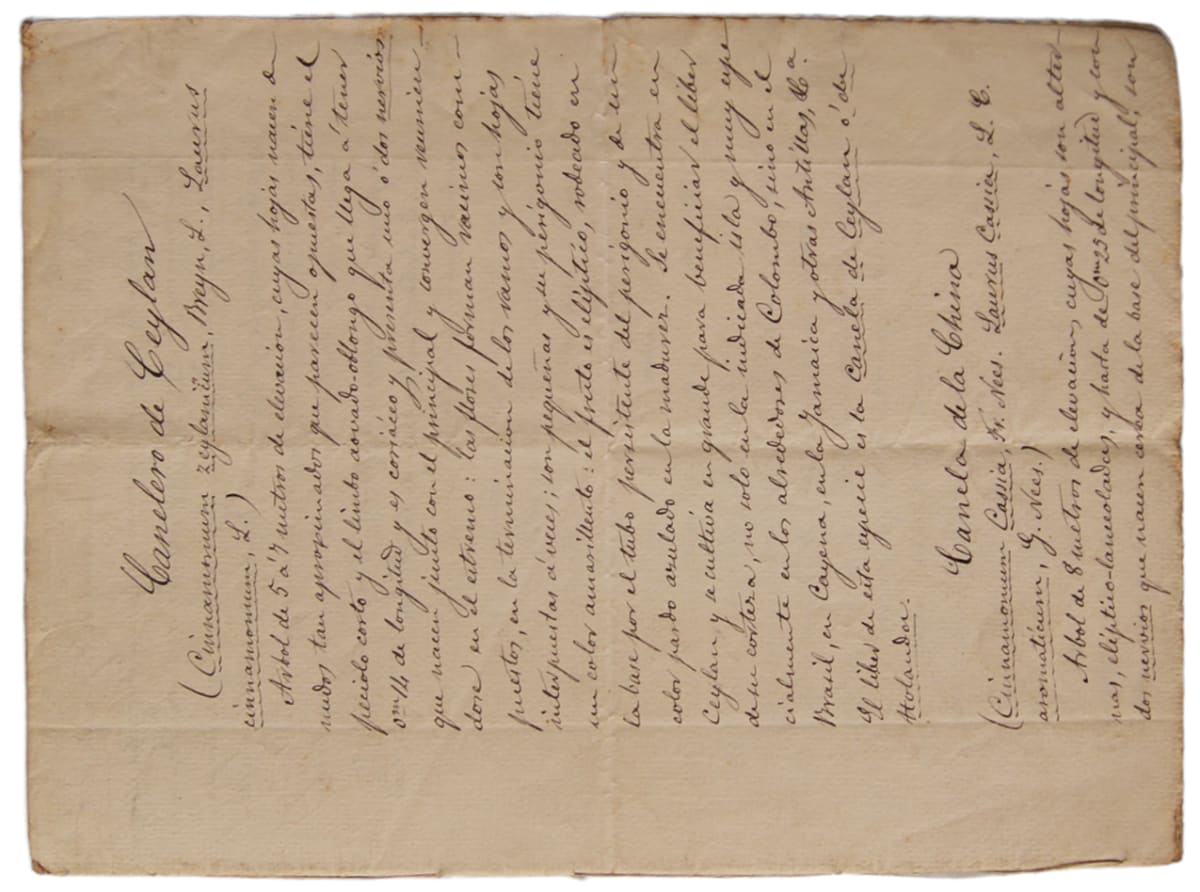 Canelero de Ceylan
(Cinnamomum zeylanicum, Breyn, L., Laurus
cinnamomum, L.)
Arbol de 5 á 7 metros de elevacion, cuyas hojas nacen de
nudos tan aproximados que parecen opuestas, tiene el
peciolo corto y el limbo aovado-oblongo que llega á tener
0m14 de longitud y es coriáceo y presenta uno ó dos nervios
que nacen junto con el principal y convergen reunien-
dose en el estremo: las flores forman racimos com-
puestos, en la terminacion de los ramos y con hojas
interpuestas á veces; son pequeñas y su perigonio tiene
un color amarillento: el fruto es elíptico, rodeado en
la base por el tubo persistente del perigonio y de un
color pardo azulado en la madurez. Se encuentra en
Ceylan y se cultiva en grande para beneficiar el liber
de su corteza, no solo en la indicada isla y muy espe
cialmente en los alrededores de Colombo, sino en el
Brasil, en Cayena, en la Jamaica y otras Antillas, &.a
El liber de esta especie es la Canela de Ceylan ó de
Holanda.
Canela de la China
(Cinnamomum Cassia, Fr. Nees. Laurus Cassia, L. C.
aromaticum, G. Nees.)
Arbol de 8 metros de elevacion, cuyas hojas son alter-
nas, elíptico-lanceoladas, y hasta de 0m25 de longitud y con
dos nervios que nacen cerca de la base del principal, son